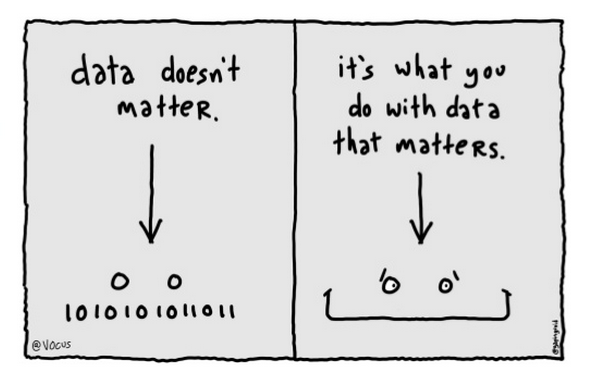 data doesn't
matter.
1010101011011
@vocus
it's what you
do with data
that matters.
@gapingvoid